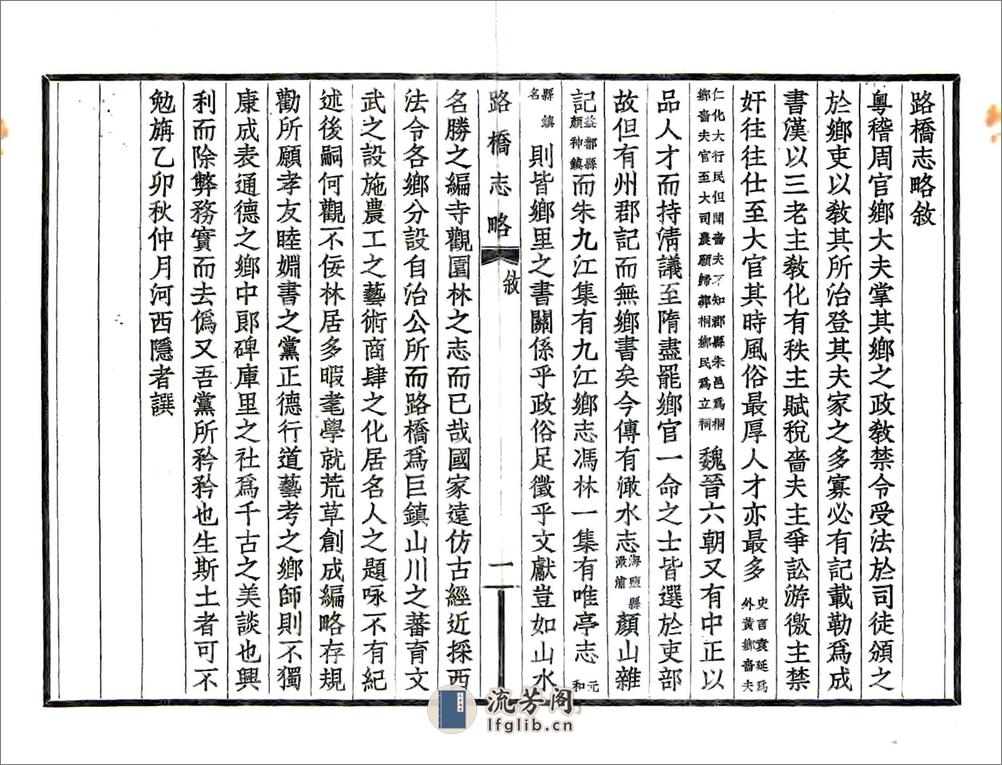 路橋志略敘
粤稽周官鄉大夫掌其鄉之政敎禁令受法於司徒頒之
於鄉吏以敎其所治登其夫家之多寡必有記載勒爲成
書漢以三老主敎化有秩主賦稅嗇夫主爭訟游徼主禁
奸往往仕至大官其時風俗最厚人才亦最多史言袁延爲外黃鄉嗇夫
仁化大行民但聞嗇夫不知郡縣朱邑爲桐鄉嗇夫官至大司農願歸葬桐鄉民爲立祠魏晉六朝又有中正以
品人才而持淸議至隋盡罷鄉官一命之士皆選於吏部
故但有州郡記而無鄉書矣今傳有澉水志海鹽縣澉浦顏山雜
記益都縣顏神鎭而朱九江集有九江鄉志馮林一集有唯亭志元和
縣鎭名則皆鄉里之書關係乎政俗足徵乎文獻豈如山水
路橋志略
敘
一
名勝之編寺觀園林之志而已哉國家遠仿古經近採西
法令各鄉分設自治公所而路橋爲巨鎭山川之蕃育文
武之設施農工之藝術商肆之化居名人之題咏不有紀
述後嗣何觀不佞林居多暇耄學就荒草創成編略存規
勸所願孝友睦婣書之黨正德行道藝考之鄉師則不獨
康成表通德之鄉中郞碑庫里之社爲千古之美談也興
利而除弊務實而去僞又吾黨所矜矜也生斯土者可不
勉旃乙卯秋仲月河西隱者譔
流芳阁
lfglib.cn